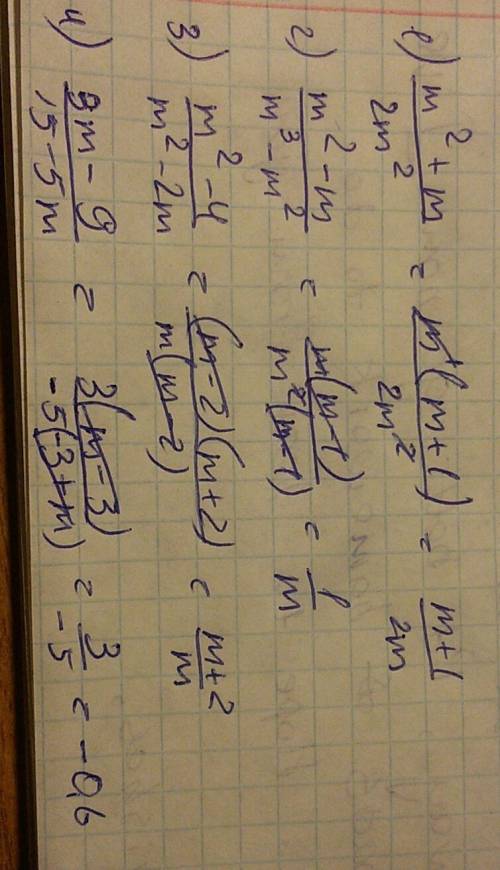 1) (m² + m)/(2m²) = (m(m+1))/(2m²) = (m+1)/(2m)
2) (m² - m)/(m³ - m²) = (m(m-1))/(m²(m-1)) = 1/m
3) (m² - 4)/(m² - 2m) = ((m-2)(m+2))/(m(m-2)) = (m+2)/m
4) (3m - 9)/(15 - 5m) = (3(m-3))/(-5(-3+m)) = 3/(-5) = -0,6